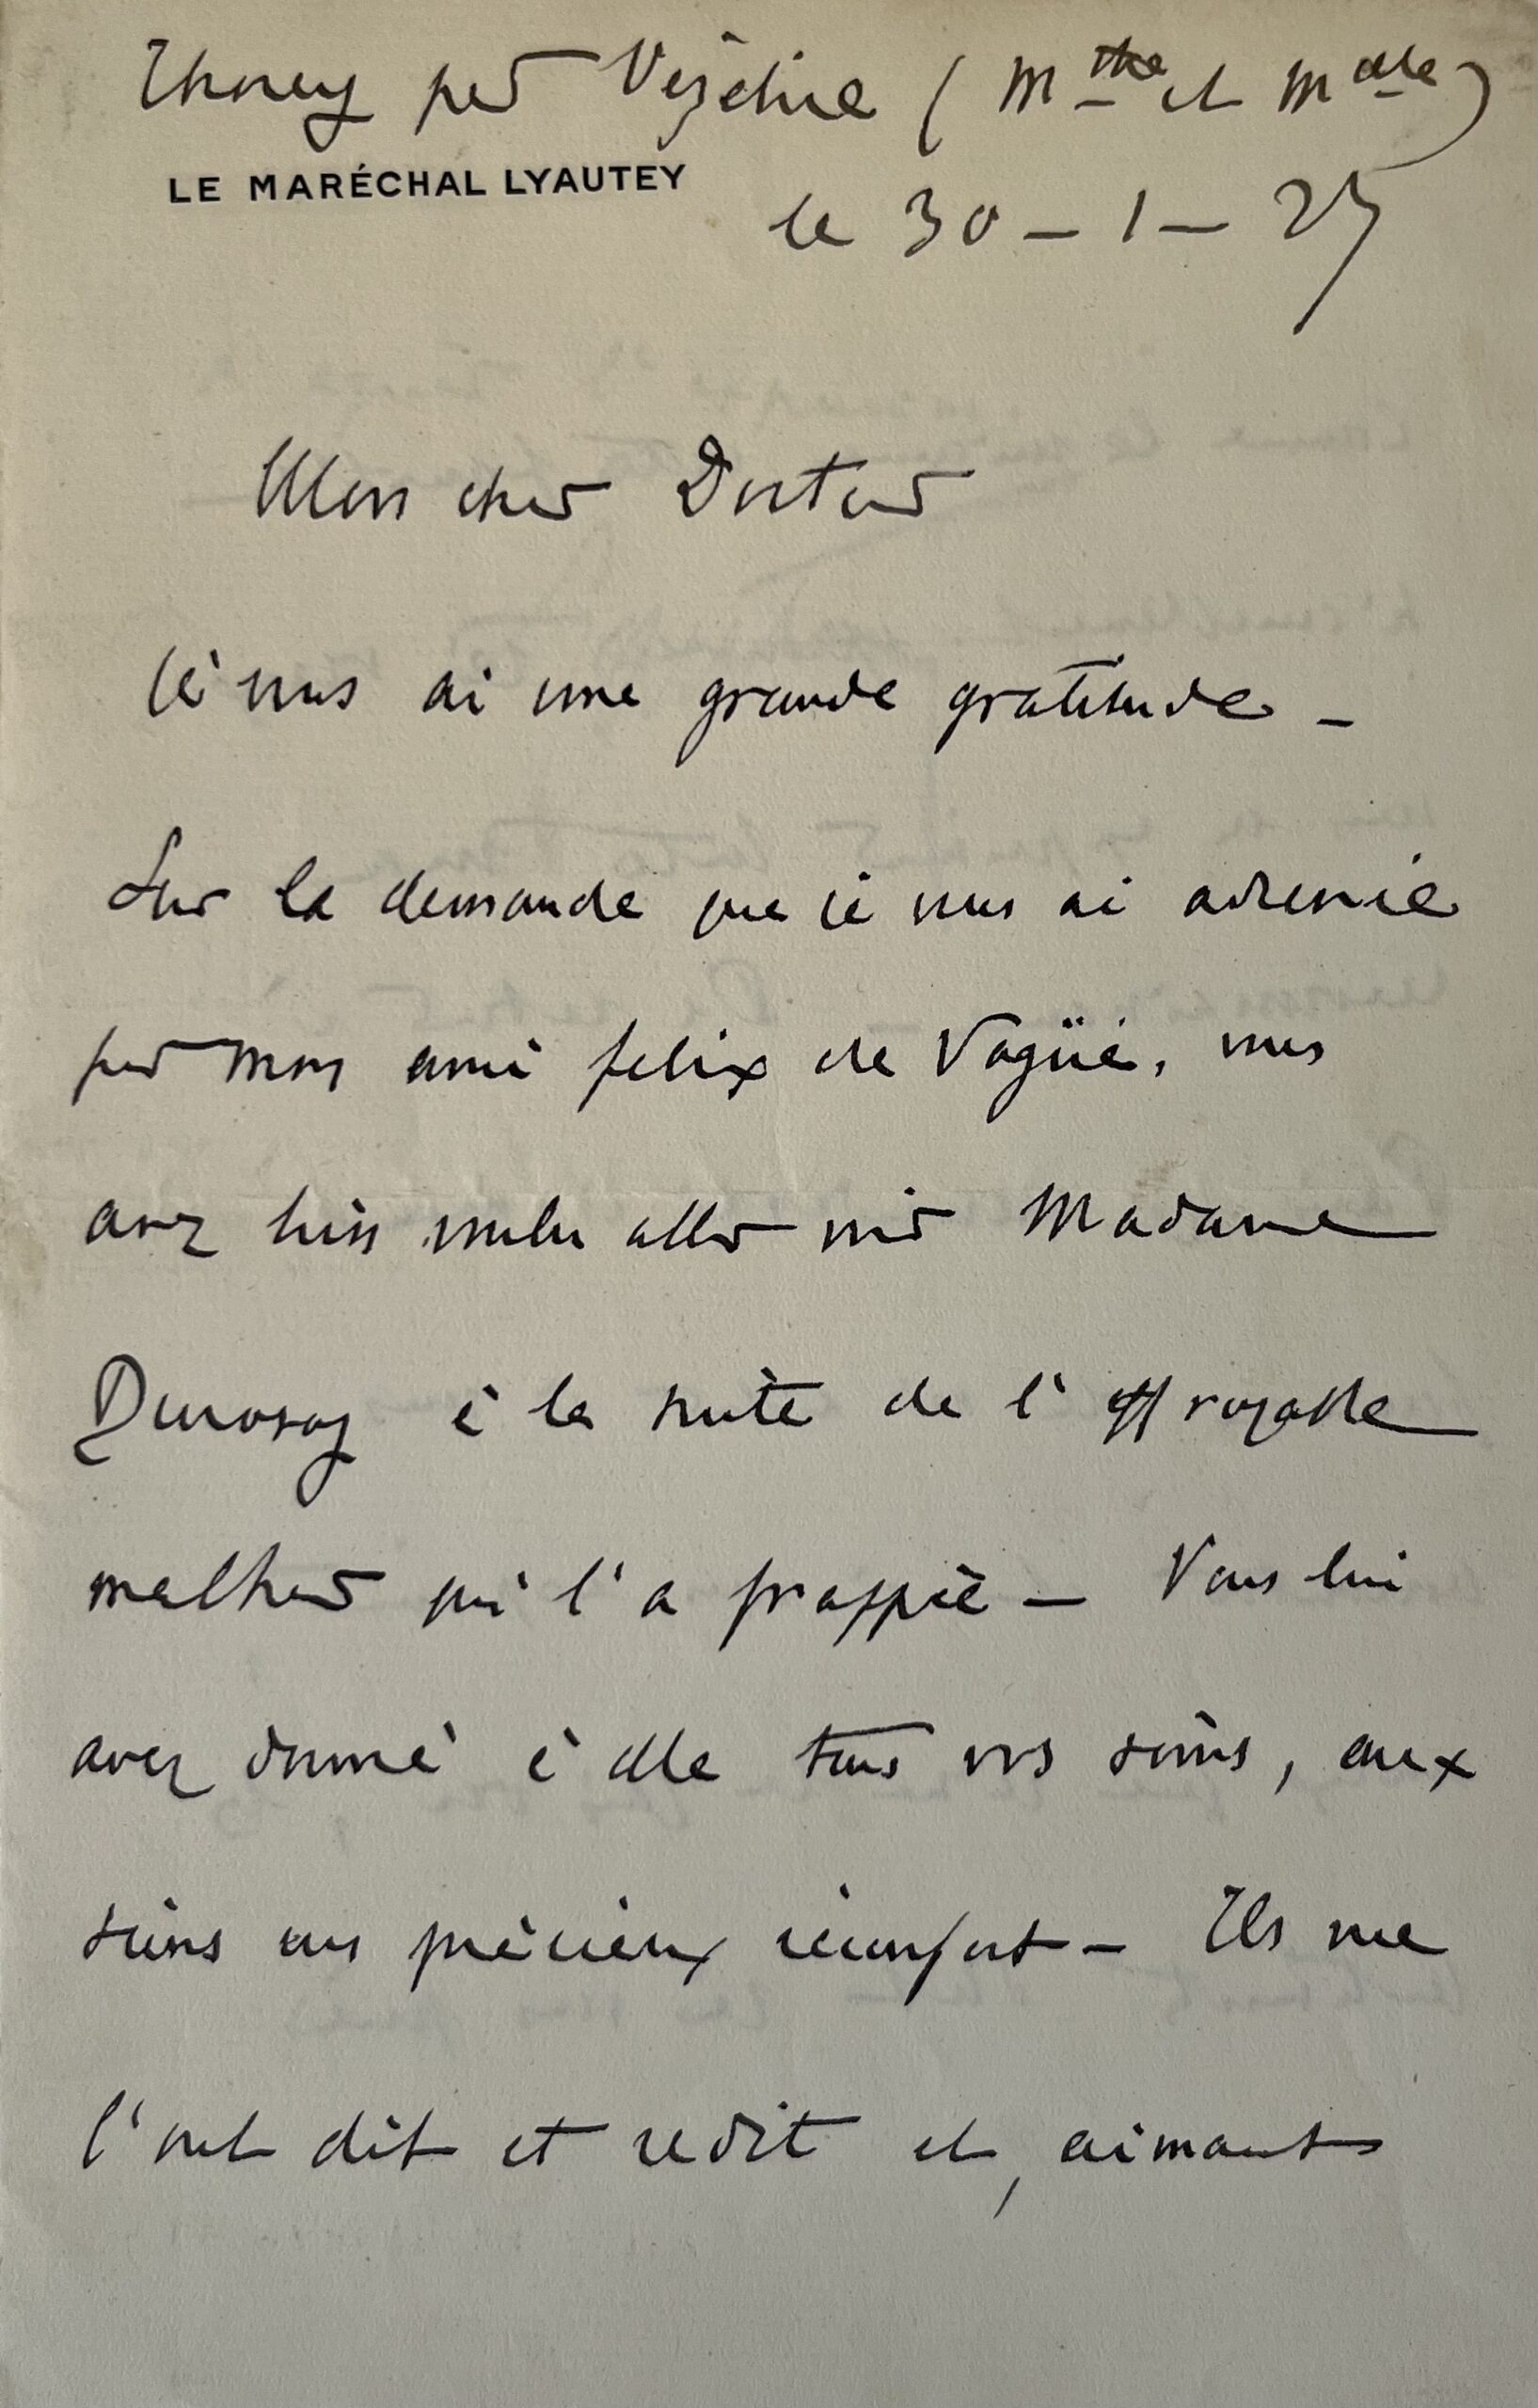 Thorey par Vézelise (Mthe et Mlle)
LE MARÉCHAL LYAUTEY
le 30 - 1 - 27
Mon cher Docteur
Je vous ai une grande gratitude -
Sur la demande que je vous ai adressée
par mon ami Felix de Vogüé, vous
avez bien voulu aller voir Madame
Durosoy à la suite de l'effroyable
malheur qui l'a frappée - Vous lui
avez donné à elle tous vos soins, aux
siens un précieux réconfort - Ils me
l'ont dit et redit et, aimant